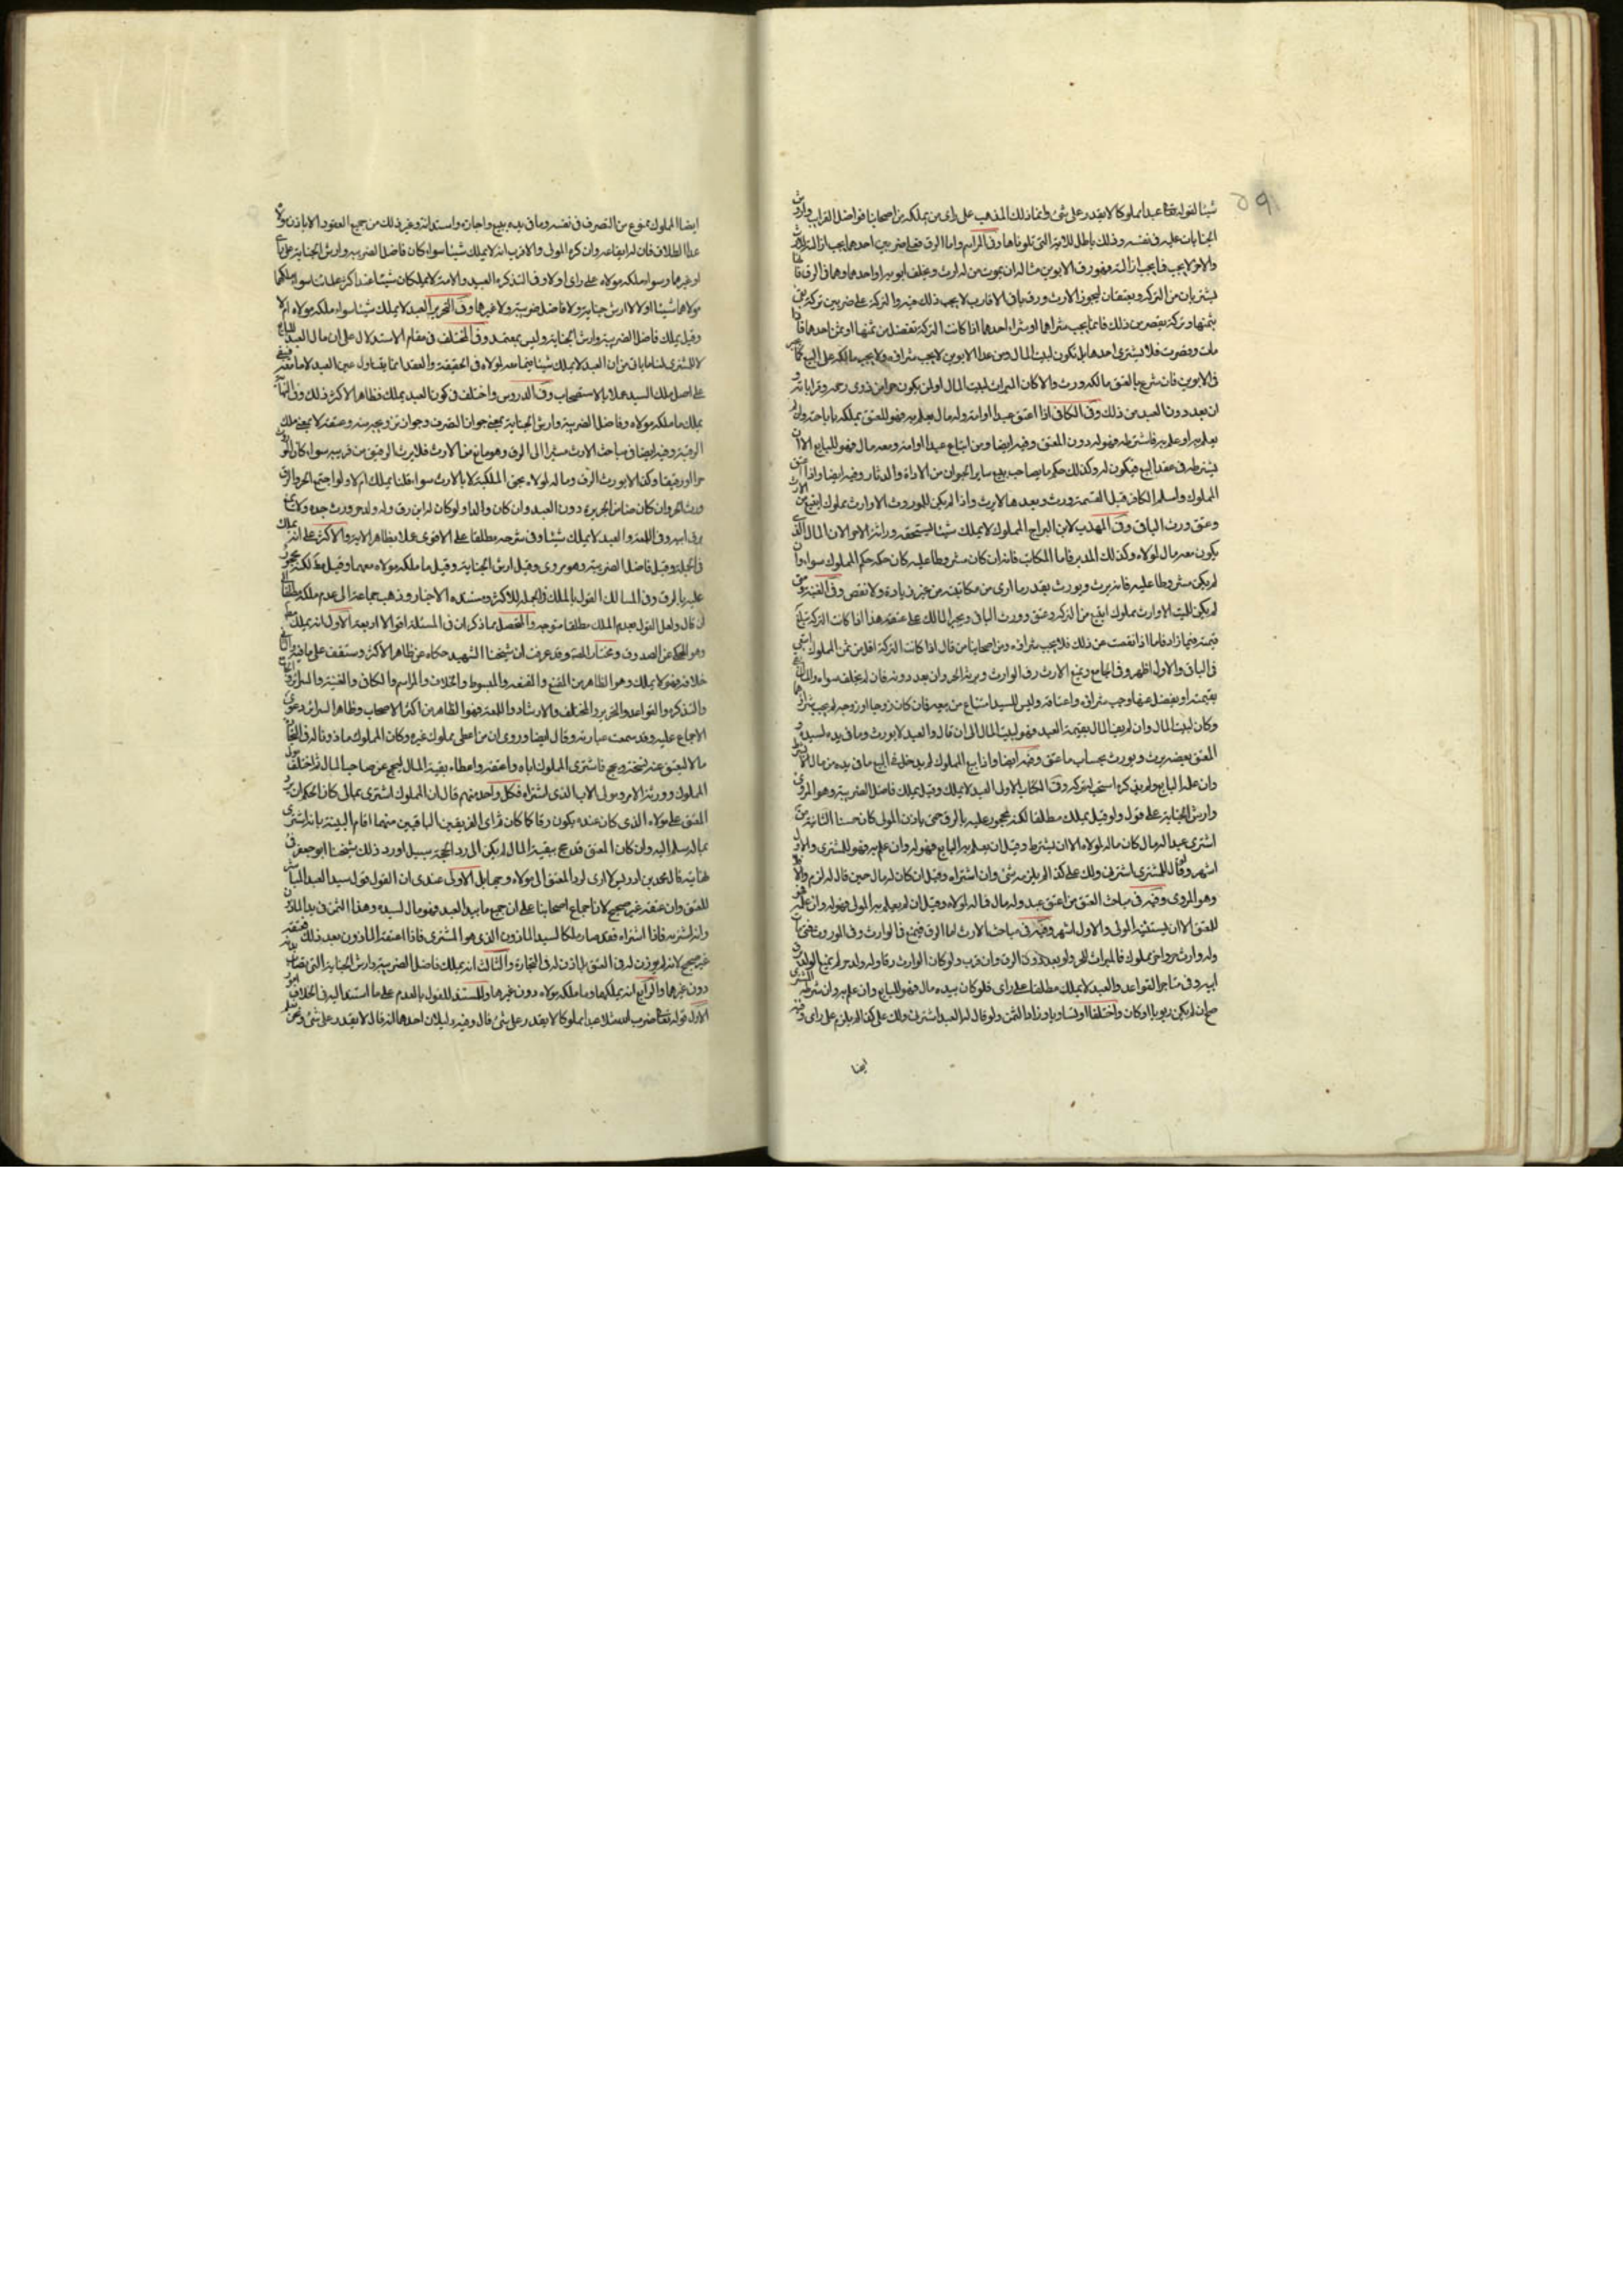 ٥٩
شيئا لقوله تعالى عبدا مملوكا لا يقدر على شئ وانما ذلك المذهب على راى من يملكه من اصحابنا فواضل الضرايب واروش
الجنايات عليه فى نفسه وذلك باطل للاية التى تلوناها وفى المراسم واما الرق فعلى ضربين احدهما يجب ازالته ليرث
والاخر لا يجب فما يجب ازالته فهو رق الابوين مثاله ان يموت من له ارث ويخلف ابويه او احدهما وهما فى الرق فانهما
يشتريان من التركه ويعتقان ليحوزا الارث ورق باقى الاقارب لا يجب ذلك فيه والتركة على ضربين تركة تفى
بثمنها وتركة تقصر عن ذلك فانما يجب شراهما او شراء احدهما اذا كانت التركة تفضل من ثمنها او ثمن احدهما فاذا
ملت وقصرت فلا يشترى احدهما بل تكون لبيت المال ومن عدا الابوين لا يجب شراؤه ولا يجب مالكه على البيع كما
فى الابوين فان تبرع بالعتق مالكه ورث والا كان الميراث لبيت المال او لمن يكون حرا من ذوى رحمه وقراباته و
ان بعد دون العبد من ذلك وفى الكافى اذا اعتق عبدا او امته وله مال يعلم به فهو للمعتق يملكه باباحته وان لم
يعلم به او علم به فاشترطه فهو له دون المعتق وفيه ايضا ومن ابتاع عبدا او امة ومعه مال فهو للبايع الا ان
يشترطه فى عقد البيع فيكون له وكذلك حكم ما يصاحب بيع ساير الحيوان من الاداة والدثار وفيه ايضا واذا اعتق
المملوك واسلم الكافر قبل القسمة ورث وبعدها لا يرث واذا لم يكن للموروث الا وارث مملوك ابتيع من الارث
وعتق وورث الباقى وفى المهذب لابن البراج المملوك لا يملك شيئا يستحقه وراثه الاحرار لان المال الذى
يكون معه مال لمولاه وكذلك المدبر فاما المكاتب فانه ان كان مشروطا عليه كان حكمه حكم المملوك سواء وان
لم يكن مشروطا عليه فانه يرث ويورث بقدر ما ادى من مكاتبته من غير زيادة ولا نقص وفى الغنية ومن
لم يكن للميت الا وارث مملوك ابتيع من التركه وعتق وورث الباقى ويجبر المالك على عتقه هذا اذا كانت التركة تبلغ
قيمته فما زاد فاما اذا نقصت عن ذلك فلا يجب شراؤه ومن اصحابنا من قال اذا كانت التركة اقل من ثمن المملوك استسعى
فى الباقى والاول اظهر وفى الجامع ويمنع الارث رق الوارث ويرثه الحر وان بعد دونه فان لم يخلف سواه والمال يفى
بقيمته او يفضل عنها وجب شراؤه واعتاقه وليس للسيد امتناع من بيعه فان كان زوجا او زوجة لم يجب شراؤهما
وكان لبيت المال وان لم يف المال بقيمة العبد فهو لبيت المال الى ان قال والعبد لا يورث وما فى يده لسيده و
المعتق بعضه يرث ويورث بحساب ما عتق وفيه ايضا واذا بيع المملوك لم يدخل فى البيع ما فى يده من مال الا بشرط
وان علمه البايع ولم يذكره استحب له تركه وفى الكتاب الاول العبد لا يملك وقيل يملك فاضل الضريبة وهو المروى
وارش الجناية على قول ولو قيل يملك مطلقا لكنه محجور عليه بالرق حتى ياذن المولى كان حسنا الثانية من
اشترى عبدا له مال كان ماله لمولاه الا ان يشترط وقيل ان لم يعلم به البايع فهو له وان علم به فهو للمشترى والاول
اشهر ولو قال للمشترى اشترنى ولك على كذا لم يلزمه شئ وان اشتراه وقيل ان كان له مال حين قال له لزم والا فلا
وهو المروى وفيه فى مباحث العتق من اعتق عبده وله مال فماله لمولاه وقيل ان لم يعلم به المولى فهو له وان علمه فهو
للمعتق الا ان يستثنيه المولى والاول اشهر وفيه فى مباحث الارث اما الرق فيمنع فى الوارث وفى الموروث فمن مات
وله وارث حر واخر مملوك فالميراث للحر ولو بعد دون الرق وان قرب ولو كان الوارث رقا وله ولد حر لم يمنع الولد برق
ابيه وفى متاجر القواعد والعبد لا يملك مطلقا على راى فلو كان بيده مال فهو للبايع وان علم به وان شرطه المشترى
صح ان لم يكن ربويا او كان واختلفا او تساويا وزاد الثمن ولو قال له العبد اشترنى ولك على كذا لم يلزم على راى وفيه
ايضا
ايضا المملوك ممنوع من التصرف فى نفسه وما فى يده ببيع واجارة واستدانة وغير ذلك من جميع العقود الا باذن مولاه
عدا الطلاق فان له ايقاعه وان كره المولى والاقرب انه لا يملك شيئا سواء كان فاضل الضريبه وارش الجناية على راى
او غيرهما وسواء ملكه مولاه على راى او لا وفى التذكره العبد والامة لا يملكان شيئا عند اكثر علمائنا سواء ملكهما
مولاهما شيئا او لا لا ارش جناية ولا فاضل ضريبة ولا غيرهما وفى التحرير العبد لا يملك شيئا سواء ملكه مولاه ام لا
وقيل يملك فاضل الضريبة وارش الجناية وليس بمعتمد وفى المختلف فى مقام الاستدلال على ان مال العبد للبايع
لا للمشترى لنا ما ياتى من ان العبد لا يملك شيئا فما معه لمولاه فى الحقيقة والعقد انما يتناول عين العبد لا ما معه فيبقى
على اصل ملك السيد عملا بالاستصحاب وفى الدروس واختلف فى كون العبد يملك فظاهر الاكثر ذلك وفى النهاية
يملك ما ملكه مولاه وفاضل الضريبة وارش الجناية بمعنى جواز التصرف وجواز تزويجه منه وعتقه لا بمعنى ملك
الرقبة وفيه ايضا فى مباحث الارث مشيرا الى الرق وهو مانع من الارث فلا يرث الرقيق من قريبه سواء كان الموروث
حرا او رقيقا وكذا لا يورث الرق وماله لمولاه بحق الملكية لا بالارث سواء قلنا يملك ام لا ولو اجتمع الحر والرق
ورث الحر وان كان ضامن الجريرة دون العبد وان كان والدا ولو كان له ابن رق وله ولد حر ورث جده ولا يمنع
برق ابيه وفى اللمعة والعبد لا يملك شيئا وفى شرحه مطلقا على الاقوى عملا بظاهر الاية والاكثر على انه يملك
فى الجملة وقيل فاضل الضريبة وهو مروى وقيل ارش الجناية وقيل ما ملكه مولاه معهما وقيل مط لكنه محجور
عليه بالرق وفى المسالك القول بالملك فى الجمله للاكثر ومستنده الاخبار وذهب جماعة الى عدم ملكه مطلقا الى
ان قال ولعل القول بعدم الملك مطلقا متوجه والمتحصل مما ذكر ان فى المسئلة اقوالا اربعة الاول انه يملك مط
وهو المحكى عن الصدوق ومختار الشيخ وقد عرفت ان شيخنا الشهيد حكاه عن ظاهر الاكثر وستقف على ما فيه الثانى
خلافه فهو لا يملك وهو الظاهر من المقنع والمقنعه والمبسوط والخلاف والمراسم والكافى والغنية والسرائر
والتذكره والقواعد والتحرير والمختلف والارشاد واللمعة فهو الظاهر من اكثر الاصحاب وظاهر السرائر دعوى
الاجماع عليه وقد سمعت عبارته وقال ايضا وروى ان من اعطى مملوك غيره وكان المملوك ماذونا له فى التجارة
مالا ليعتق عنه نسمة ويحج فاشترى المملوك اباه واعتقه واعطاه بقية المال ليحج عن صاحب المال ثم اختلف مولى
المملوك وورثة الامر ومولى الاب الذى اشتراه فكل واحد منهم قال ان المملوك اشترى بمالى كان الحكم ان يرد
المعتق على مولاه الذى كان عنده يكون رقا كما كان ثم اى الفريقين الباقيين منهما اقام البينة بانه اشترى
بماله سلم اليه وان كان المعتق قد حج ببقية المال لم يكن الى رد الحجة سبيل اورد ذلك شيخنا ابو جعفر فى
نهايته قال محمد بن ادريس لا ارى لرد المعتق الى مولاه وجها بل الاولى عندى ان القول قول سيد العبد المباشر
للعتق وان عتقه غير صحيح لان اجماع اصحابنا على ان جميع ما بيد العبد فهو مال لسيده وهذا الثمن فى يد الماذون
وانه اشتراه فاذا اشتراه فقد صار ملكا لسيد الماذون الذى هو المشترى فاذا اعتقه الماذون بعد ذلك فعتقه
غير صحيح لانه لم يوذن له فى العتق بل اذن له فى التجارة والثالث انه يملك فاضل الضريبة وارش الجناية التى يصاب بها
دون غيرهما والرابع انه يملكهما وما ملكه مولاه دون غيرها والمستند للقول بالعدم على ما استند اليه فى الخلاف امور
الاول قوله تعالى ضرب الله مثلا عبدا مملوكا لا يقدر على شئ قال وفيه دليلان احدهما انه قال لا يقدر على شئ ونحن